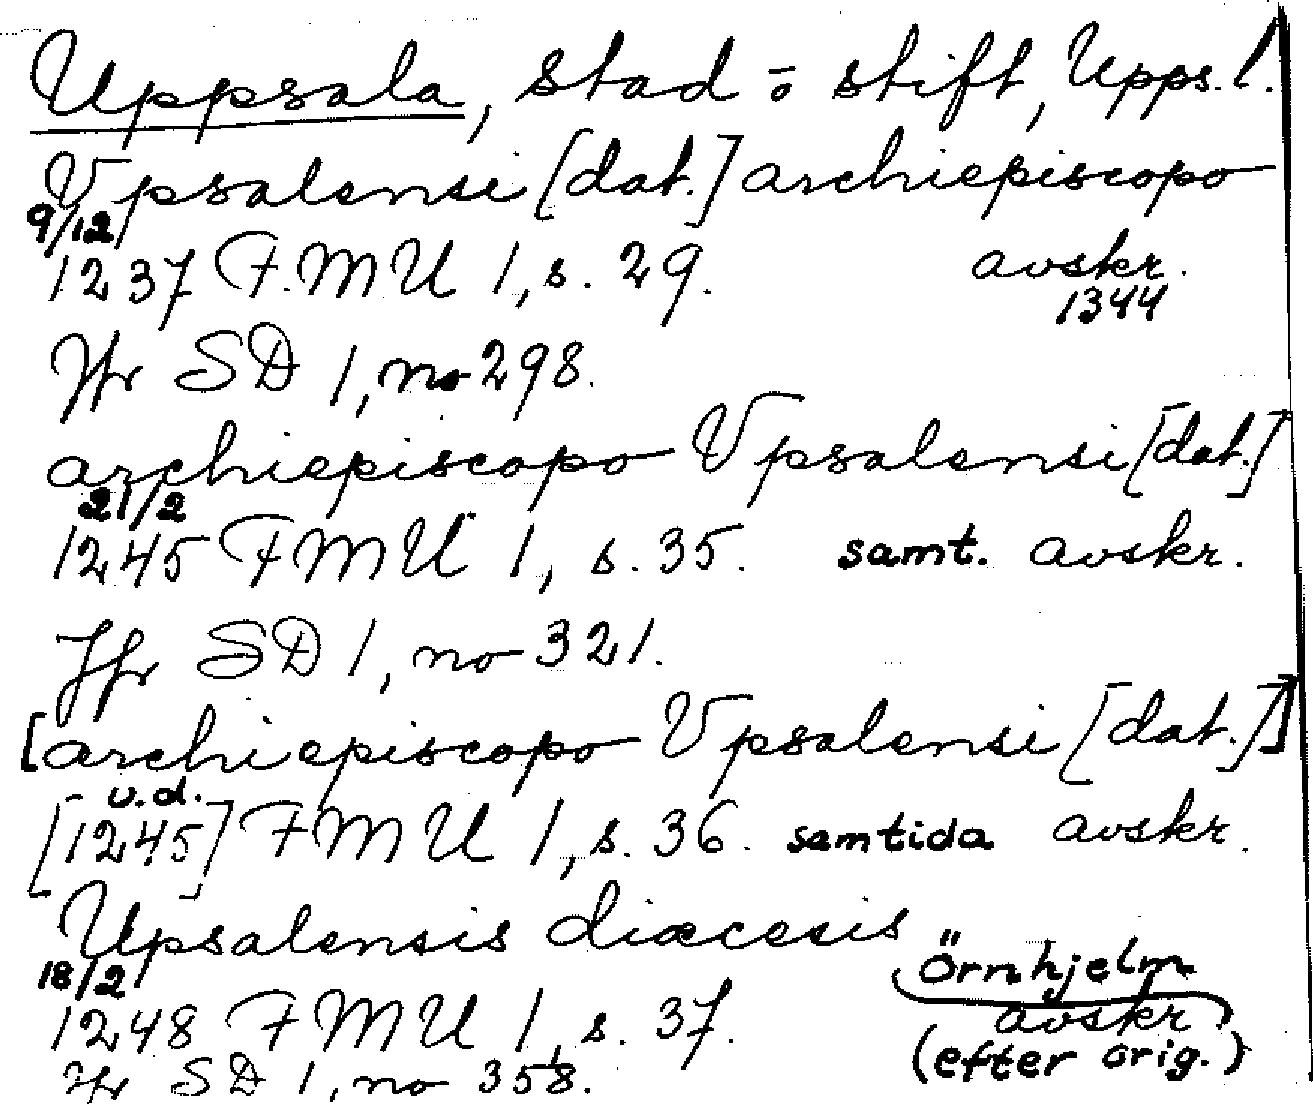 Uppsala, stad o stift, Upps. l.
Vpsalensi [dat.] archiepiscopo
9/12
1237 F.M.U 1, s. 29. avskr.
1344
Jfr SD 1, no 298.
archiepiscopo Vpsalensi [dat.]
21/2
1245 FMU 1, s. 35. samt. avskr.
Jfr SD 1, no 321.
[archiepiscopo Vpsalensi [dat.]]
u.d.
[1245] FMU 1, s. 36. samtida avskr.
Upsalensis diæcesis
18/2 Örnhjelm
1248 FMU 1, s. 37. avskr
(efter orig.)
Jfr SD 1, no 358.